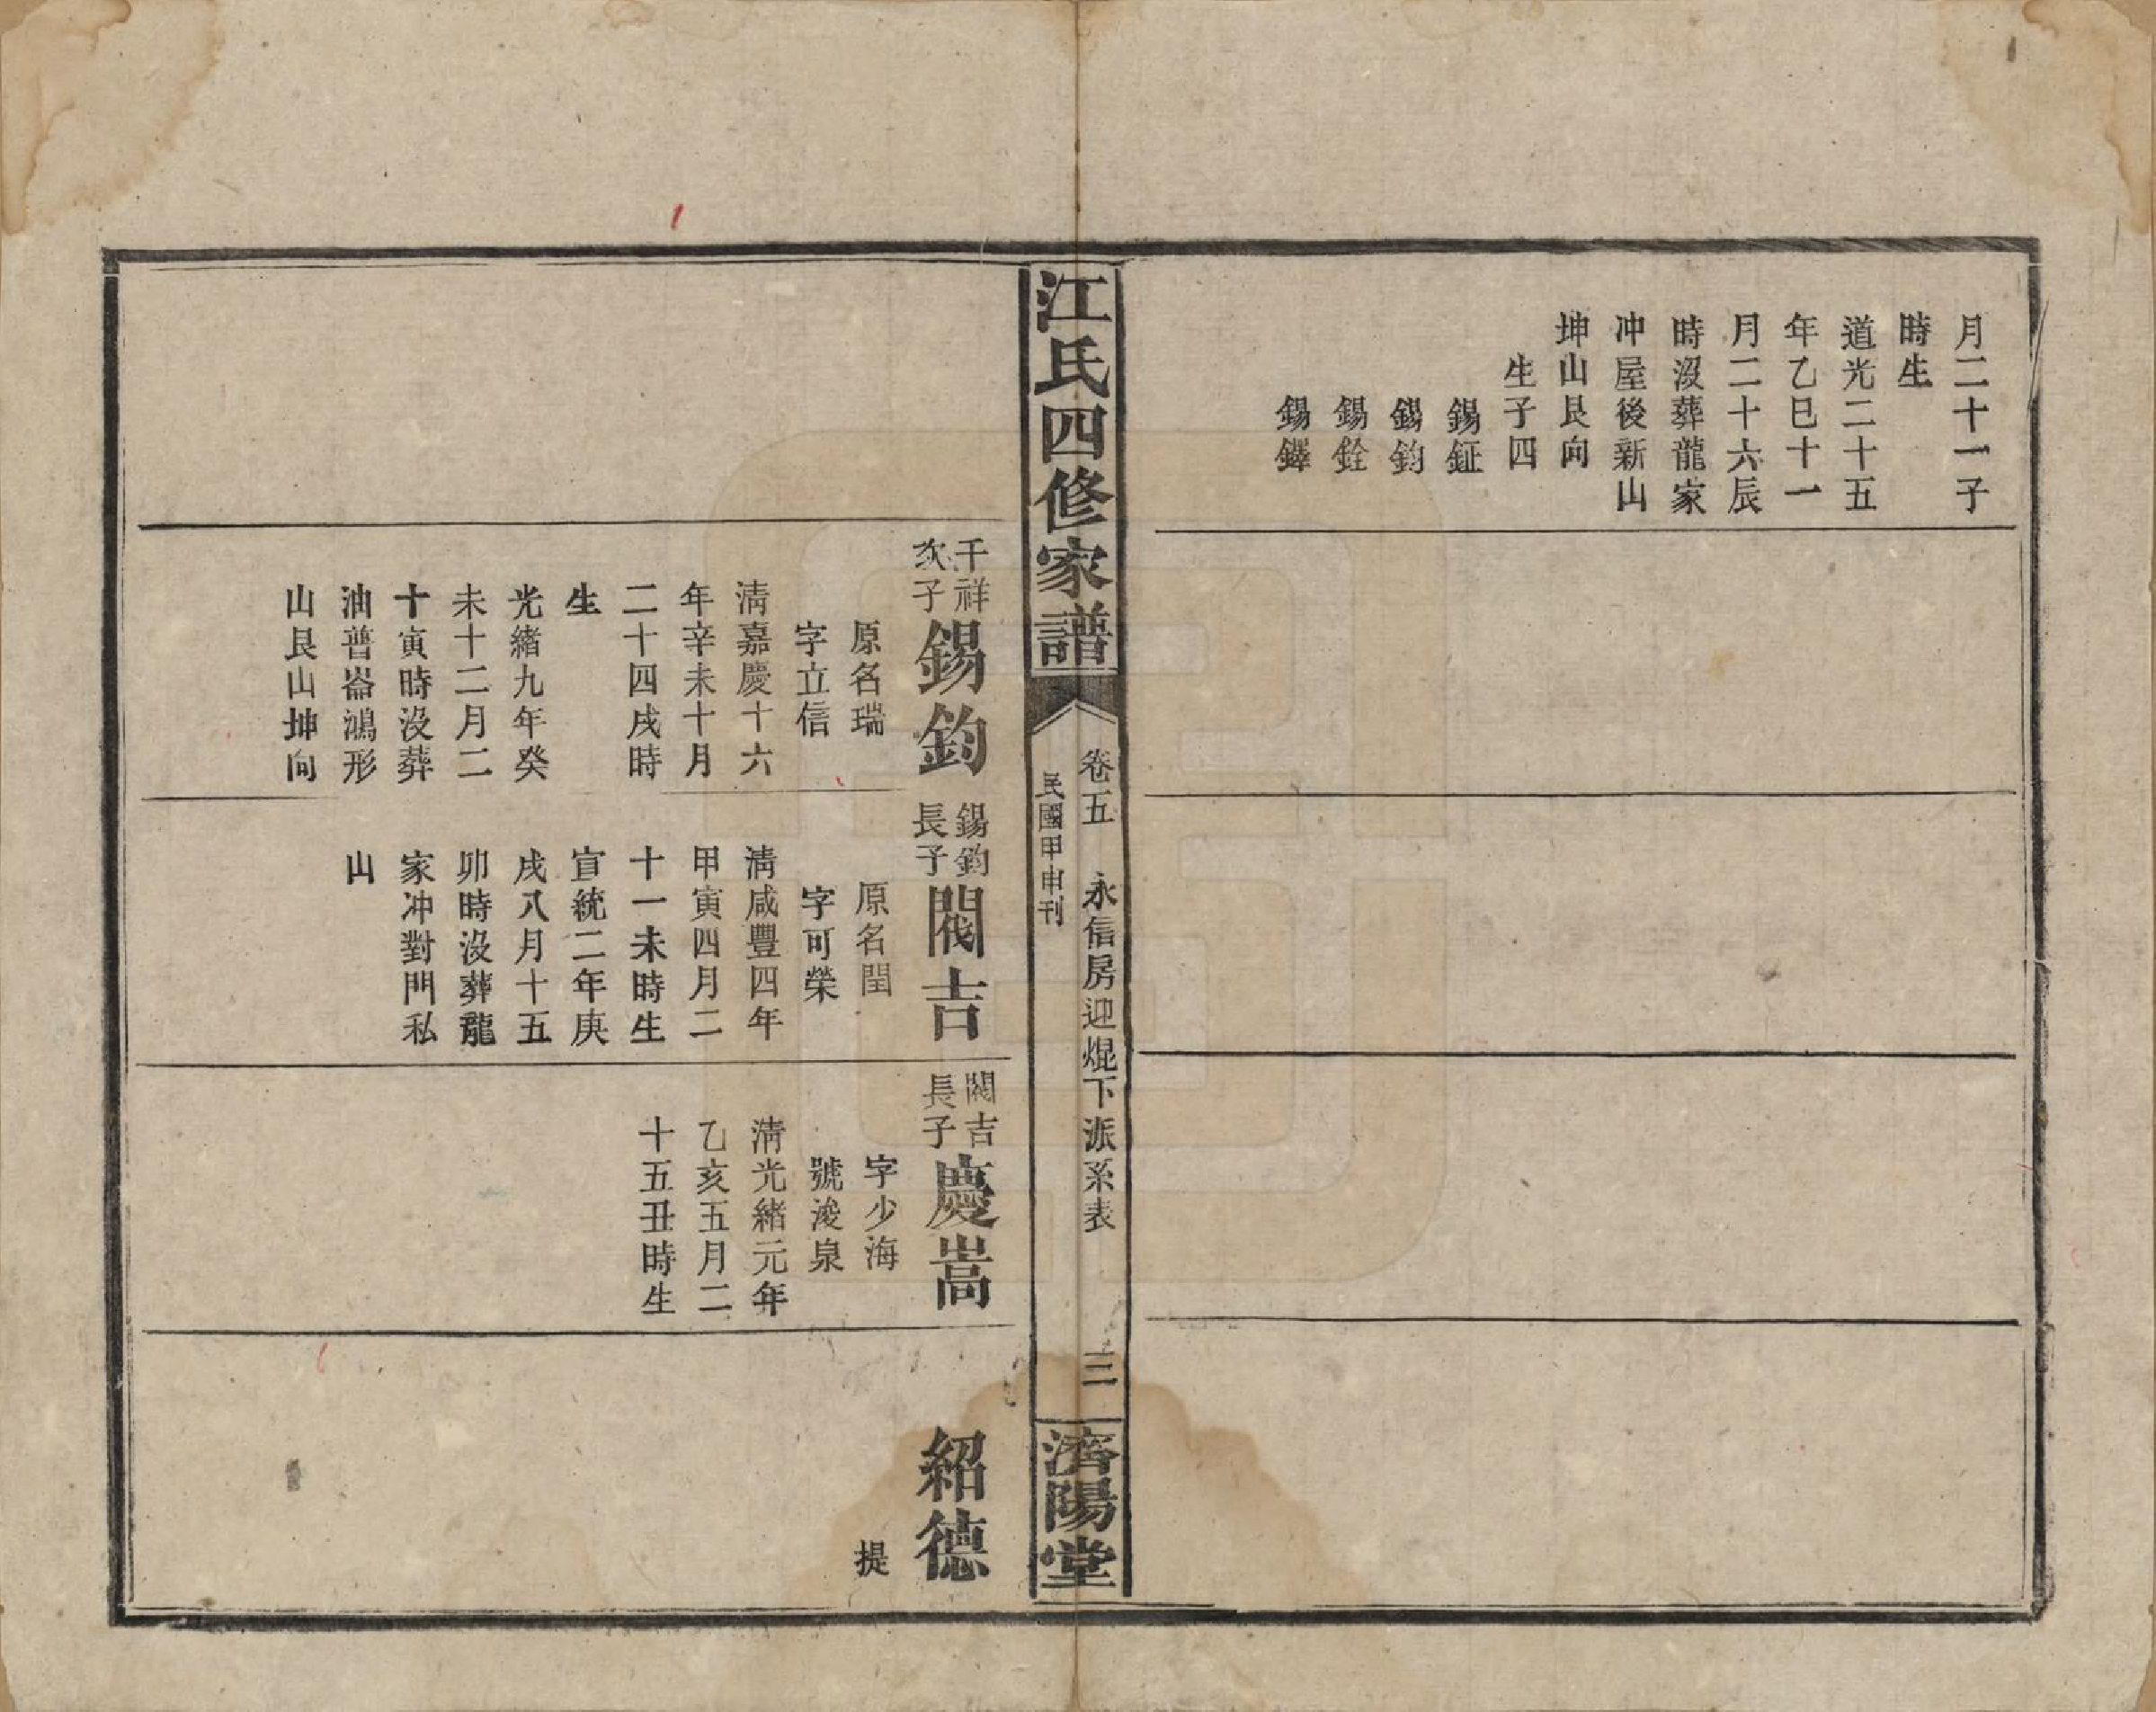 月二十一子
時生
道光二十五
年乙巳十一
月二十六辰
時沒葬龍家
冲屋後新山
坤山艮向
生子四
錫鉦
錫鈞
錫銓
錫鐸
江氏四修家譜
卷五　永信房迎焜下派系表　三
民國甲申刊
濟陽堂
千祥
次子
錫鈞
原名瑞
字立信
清嘉慶十六
年辛未十月
二十四戌時
生
光緒九年癸
未十二月二
十寅時沒葬
油普崙鴻形
山艮山坤向
錫鈞
長子
閥吉
原名閏
字可榮
清咸豐四年
甲寅四月二
十一未時生
宣統二年庚
戌八月十五
卯時沒葬龍
家冲對門私
山
閥吉
長子
慶嵩
字少海
號浚泉
清光緒元年
乙亥五月二
十五丑時生
紹德
提